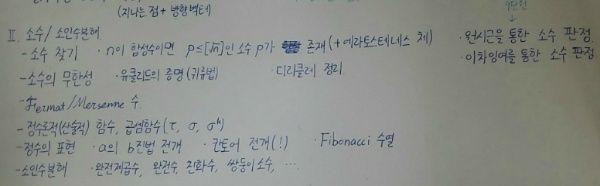 (지나는 점 + 방향벡터)
II. 소수/소인수분해
- 소수 찾기 · n이 합성수이면 p≤[√n]인 소수 p가 존재 (+에라토스테네스 체) · 원시근을 통한 소수 판정
· 이차잉여를 통한 소수 판정
- 소수의 무한성 · 유클리드의 증명(귀류법) · 디리클레 정리
- Fermat/Mersenne 수
- 정수론적(산술적) 함수, 곱셈함수 (τ, σ, σᵏ)
- 정수의 표현 · a의 b진법 전개 · 칸토어 전개(!) · Fibonacci 수열
- 소인수분해 · 완전제곱수, 완전수, 친화수, 쌍둥이소수, …